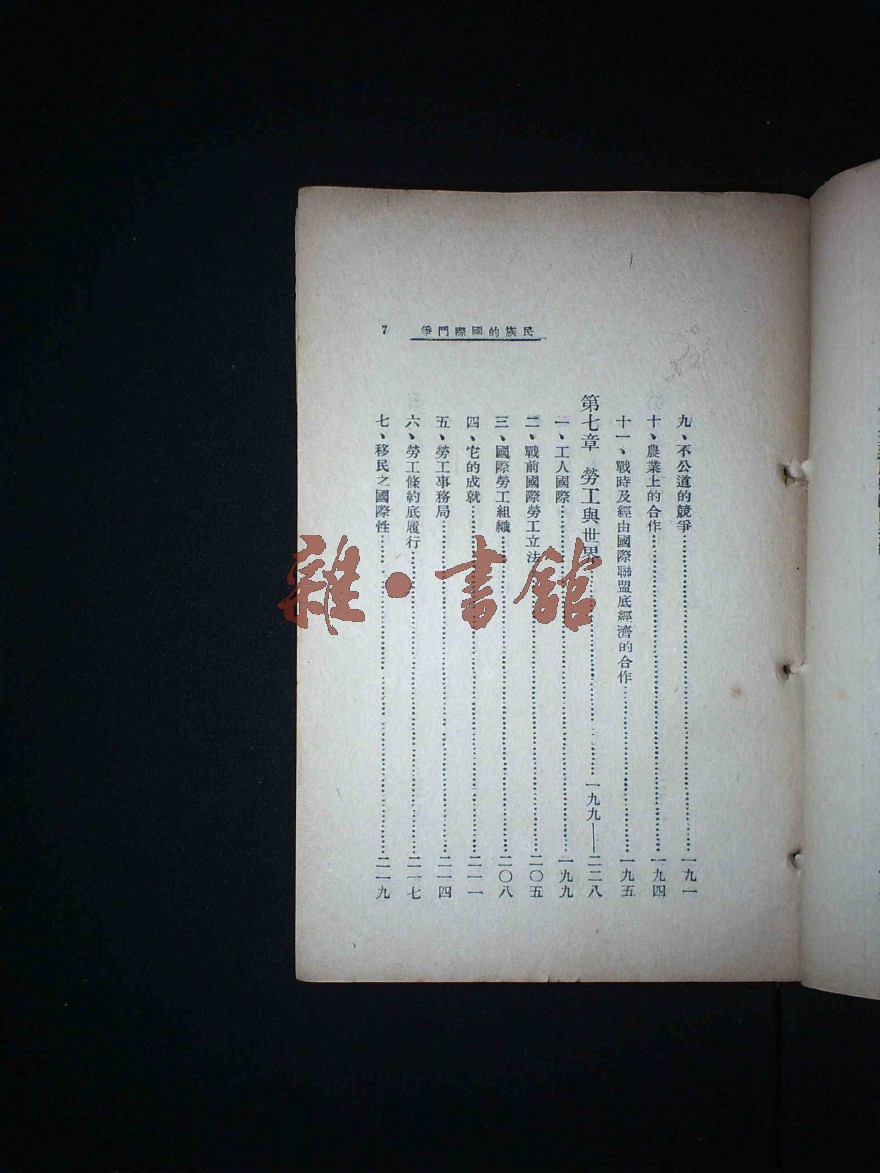 民族的國際鬥爭 7
九、不公道的競爭……一九一
十、農業上的合作……一九四
十一、戰時及經由國際聯盟底經濟的合作……一九五
第七章 勞工與世界……一九九——二二八
一、工人國際……一九九
二、戰前國際勞工立法……二〇五
三、國際勞工組織……二〇八
四、它的成就……二一一
五、勞工事務局……二一四
六、勞工條約底履行……二一七
七、移民之國際性……二一九
雜·書館